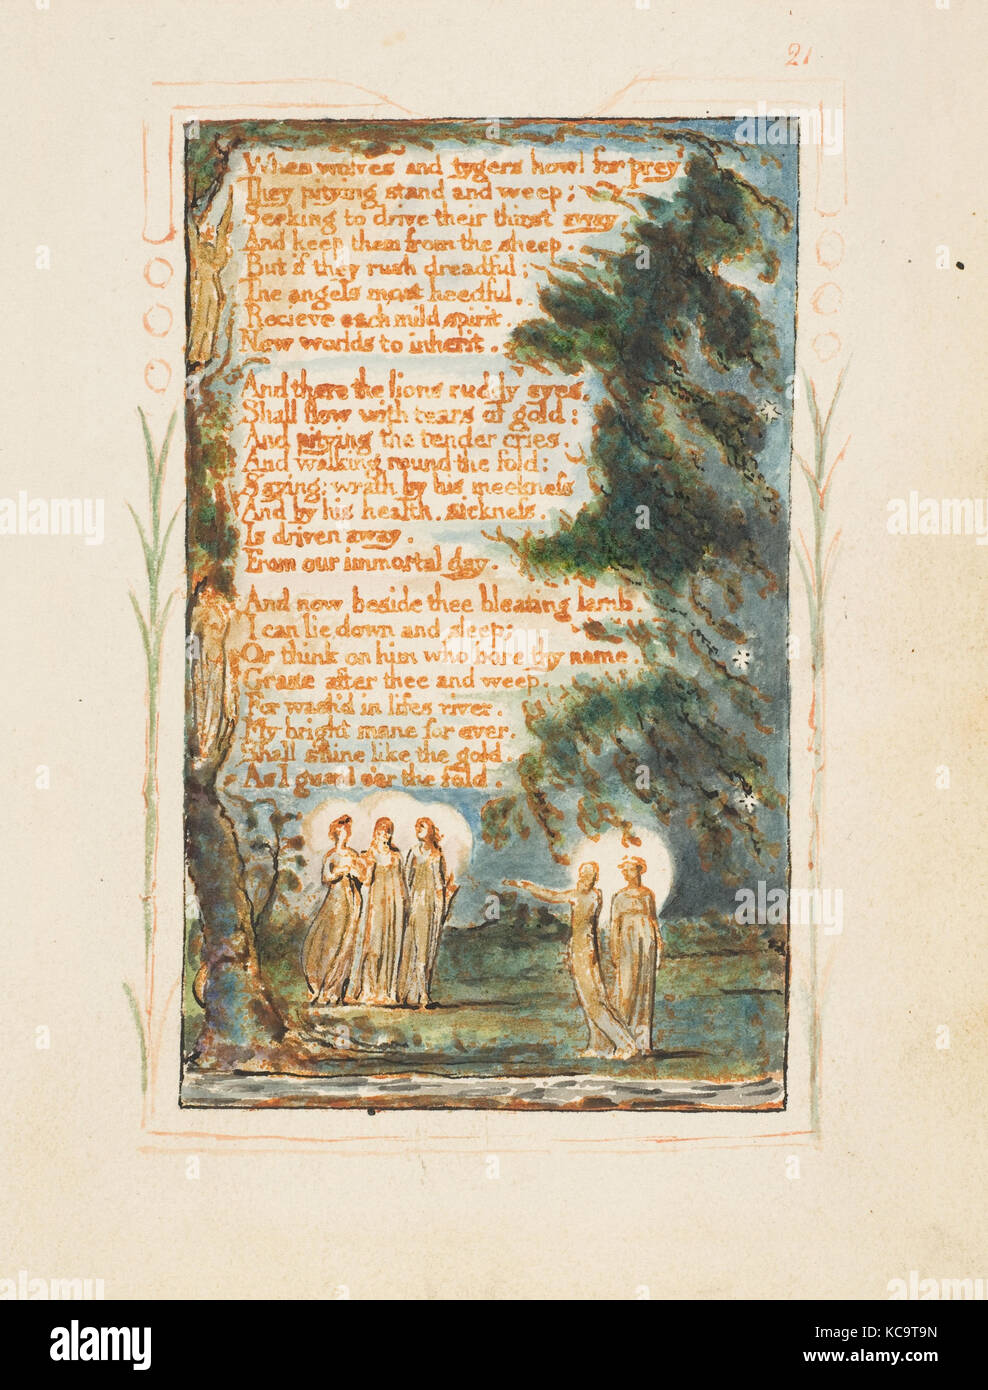 21
When wolves and tygers howl for prey
They pitying stand and weep;
Seeking to drive their thirst away
And keep them from the sheep.
But if they rush dreadful;
The angels most heedful.
Recieve each mild spirit
New worlds to inherit.
And there the lions ruddy eyes.
Shall flow with tears of gold:
And pitying the tender cries.
And walking round the fold:
Saying: wrath by his meekness
And by his health. sickness.
Is driven away.
From our immortal day.
And now beside thee bleating lamb.
I can lie down and sleep;
Or think on him who bore thy name.
Graze after thee and weep.
For wash'd in lifes river.
My bright mane for ever.
Shall shine like the gold.
As I guard o'er the fold.
alamy
Image ID: KC9T9N
www.alamy.com